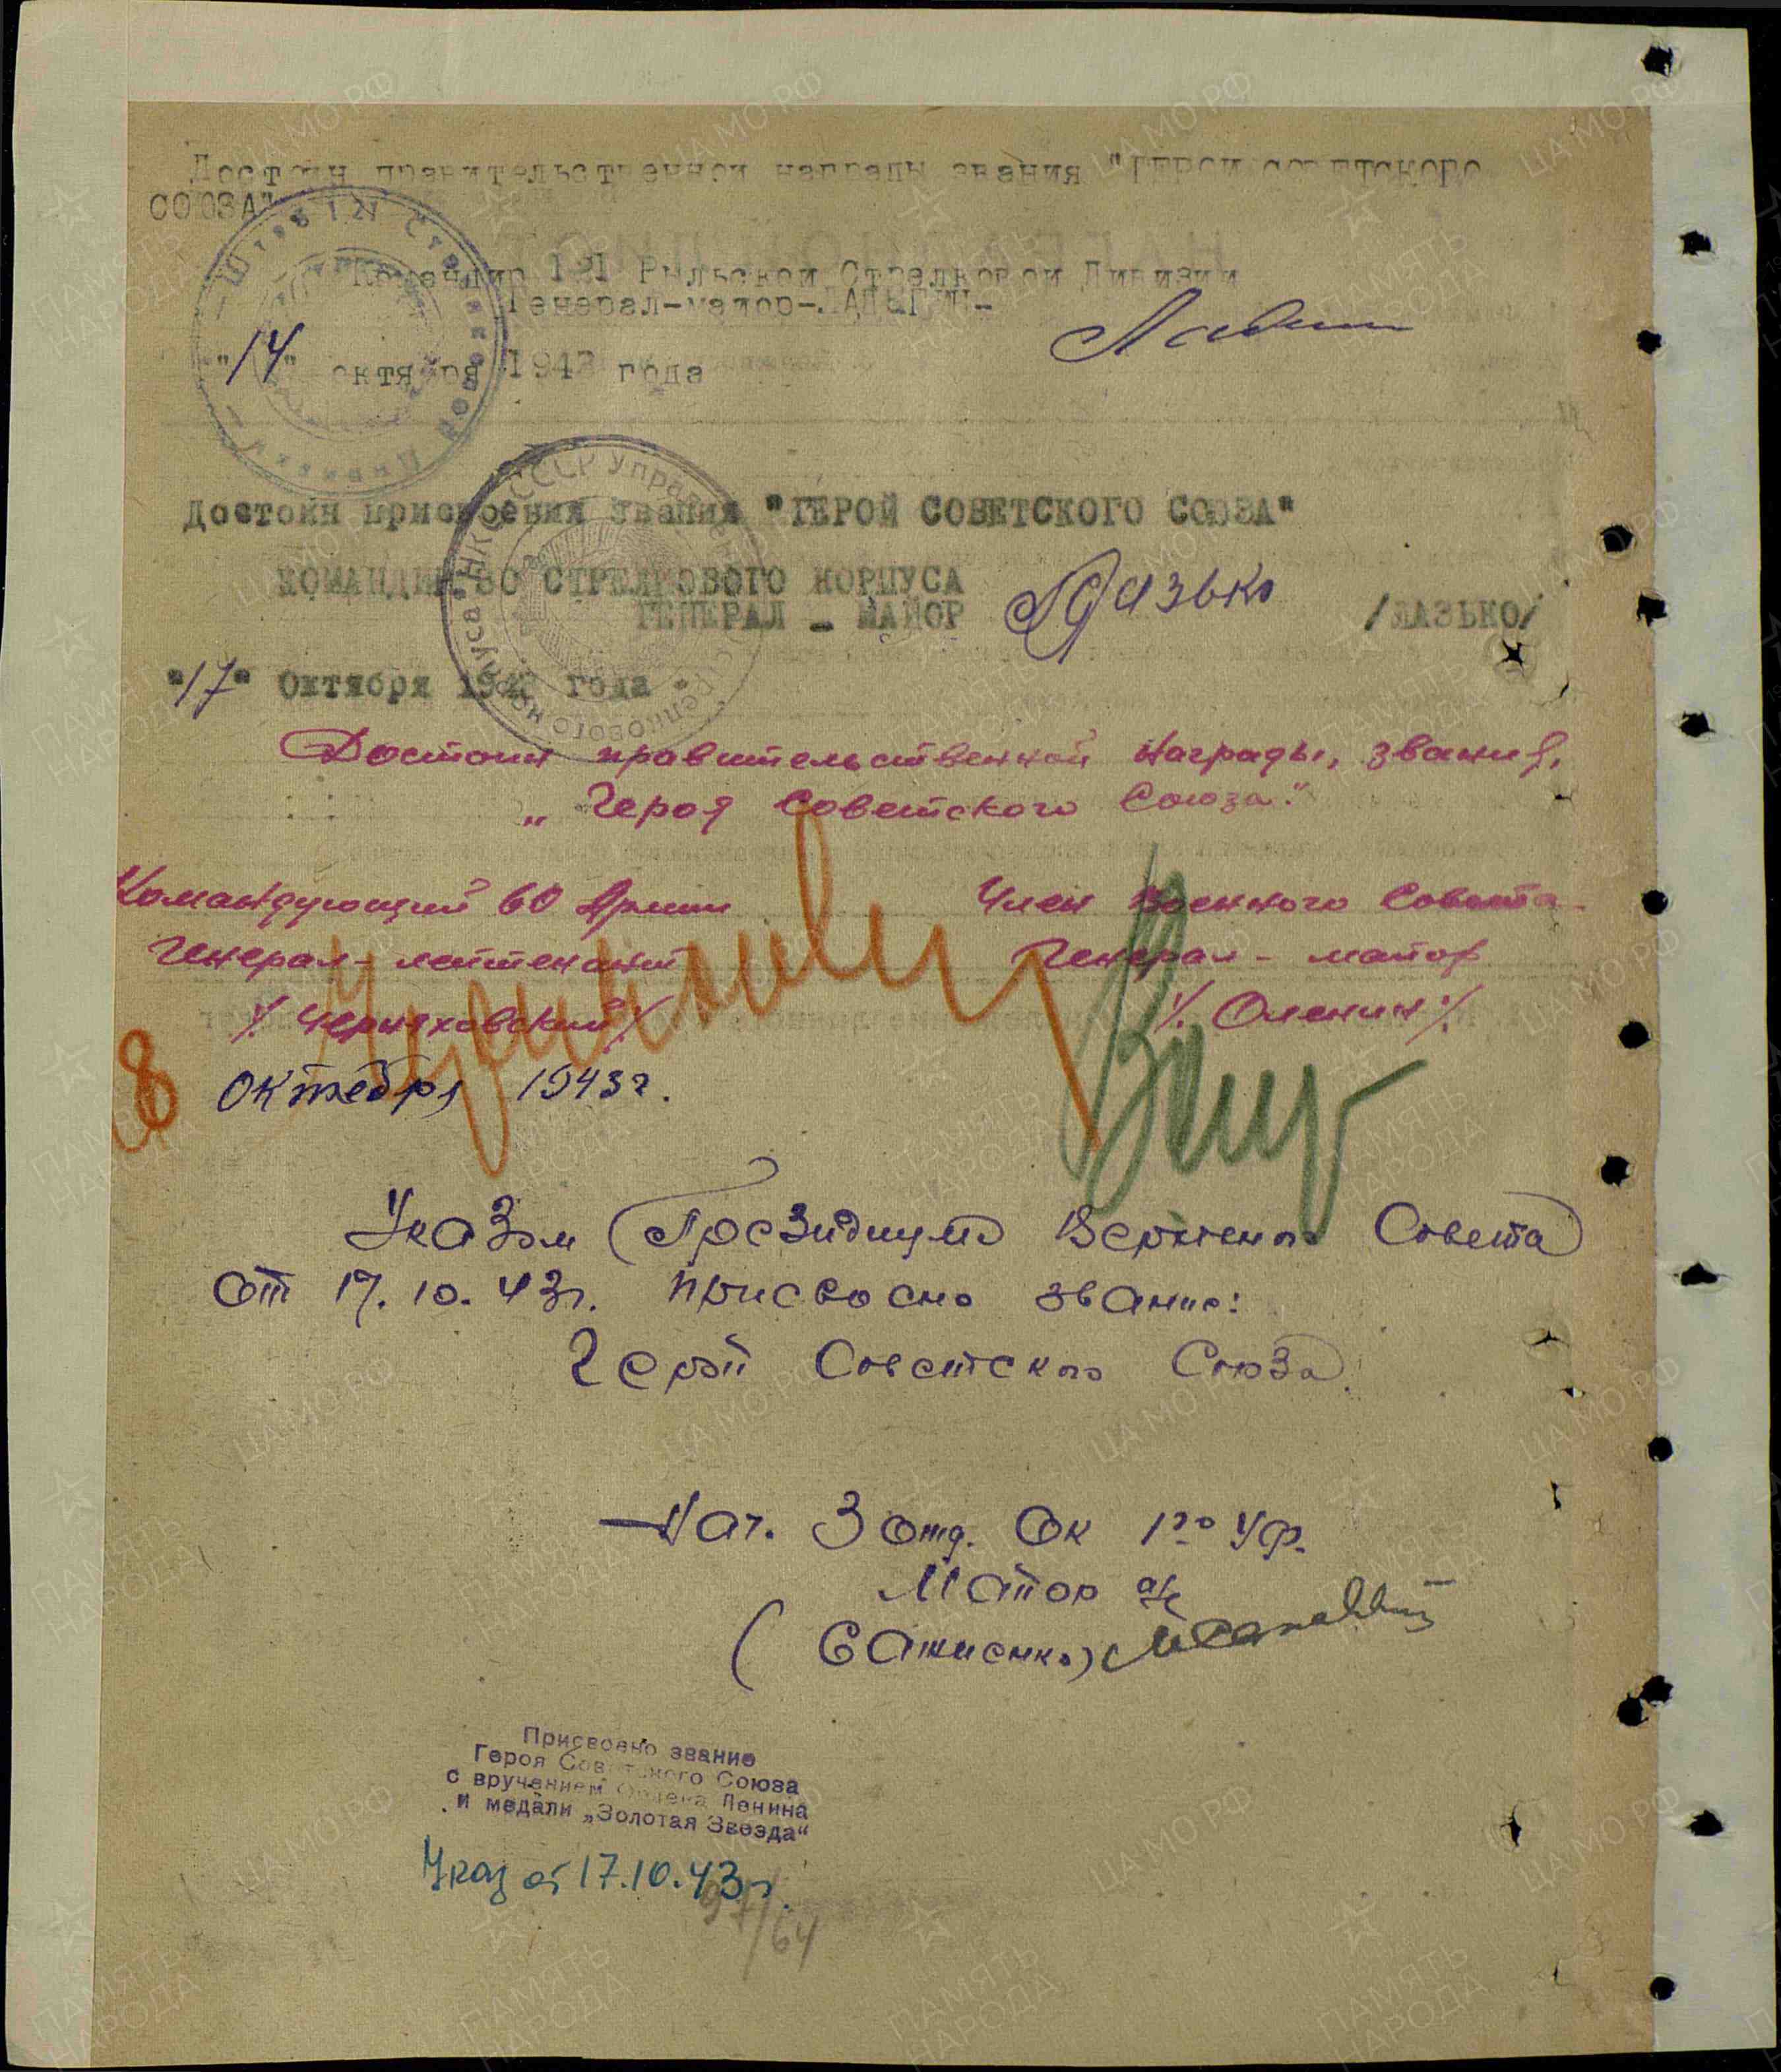 Достоин правительственной награды звания "ГЕРОЙ СОВЕТСКОГО
СОЮЗА"
Командир 121 Рыльской Стрелковой Дивизии
Генерал-майор-ЛАДЫГИН-
"14" октября 1943 года
Достоин присвоения звания "ГЕРОЙ СОВЕТСКОГО СОЮЗА"
КОМАНДИР 30 СТРЕЛКОВОГО КОРПУСА
ГЕНЕРАЛ - МАЙОР Лазько /ЛАЗЬКО/
"17" Октября 1943 года
Достоин правительственной награды, звания,
„Героя Советского Союза."
Командующий 60 Армии
Генерал-лейтенант
/Черняховский/
Член Военного Совета
Генерал-майор
/Оленин/
8 октября 1943г.
Указом Президиума Верховного Совета
от 17.10.43г. присвоено звание:
Герой Советского Союза.
Нач. 3 отд. ОК 1го Уф.
Майор а/с
Присвоено звание
Героя Советского Союза
с вручением Ордена Ленина
и медали „Золотая Звезда“
Указ от 17.10.43г.
97/64
Штаб 121 Стрелковой Дивизии
НКО СССР Управление Стрелкового корпуса
ПАМЯТЬ НАРОДА
ЦАМО.РФ